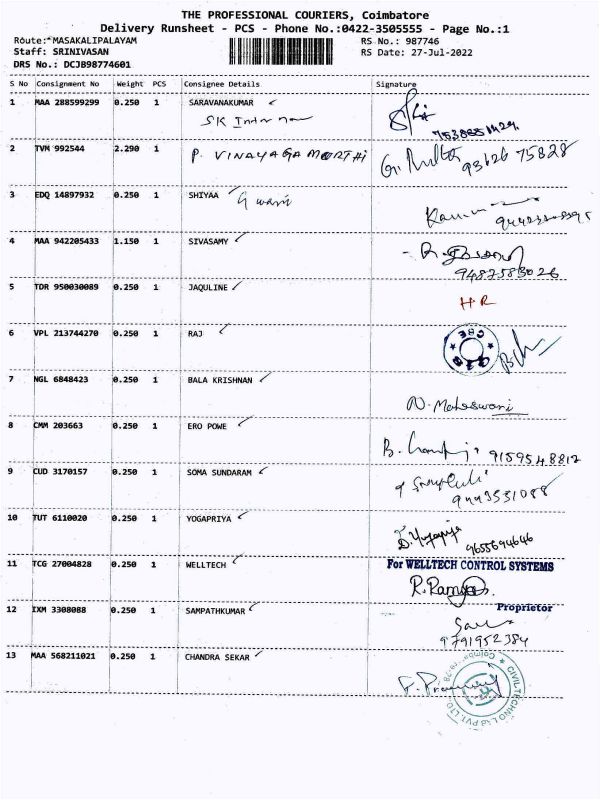 THE PROFESSIONAL COURIERS, Coimbatore
Delivery Runsheet - PCS - Phone No.:0422-3505555 - Page No.:1
Route: MASAKALIPALAYAM RS No.: 987746
Staff: SRINIVASAN RS Date: 27-Jul-2022
DRS No.: DCJB98774601
S No Consignment No Weight PCS Consignee Details Signature
1 MAA 288599299 0.250 1 SARAVANAKUMAR
SK
2 TVM 992544 2.290 1 P. VINAYAGAMOORTHI
93626 75828
3 EDQ 14897932 0.250 1 SHIYAA
4 MAA 942205433 1.150 1 SIVASAMY
9487583026
5 TDR 950030089 0.250 1 JAQULINE
HR
6 VPL 213744270 0.250 1 RAJ
CBE
7 NGL 6848423 0.250 1 BALA KRISHNAN
N. Maheswari
8 CMM 203663 0.250 1 ERO POWE
9159548812
9 CUD 3170157 0.250 1 SOMA SUNDARAM
9443531088
10 TUT 6110020 0.250 1 YOGAPRIYA
9655694646
11 TCG 27004828 0.250 1 WELLTECH
For WELLTECH CONTROL SYSTEMS
Proprietor
12 IXM 3308088 0.250 1 SAMPATHKUMAR
9791952384
13 MAA 568211021 0.250 1 CHANDRA SEKAR